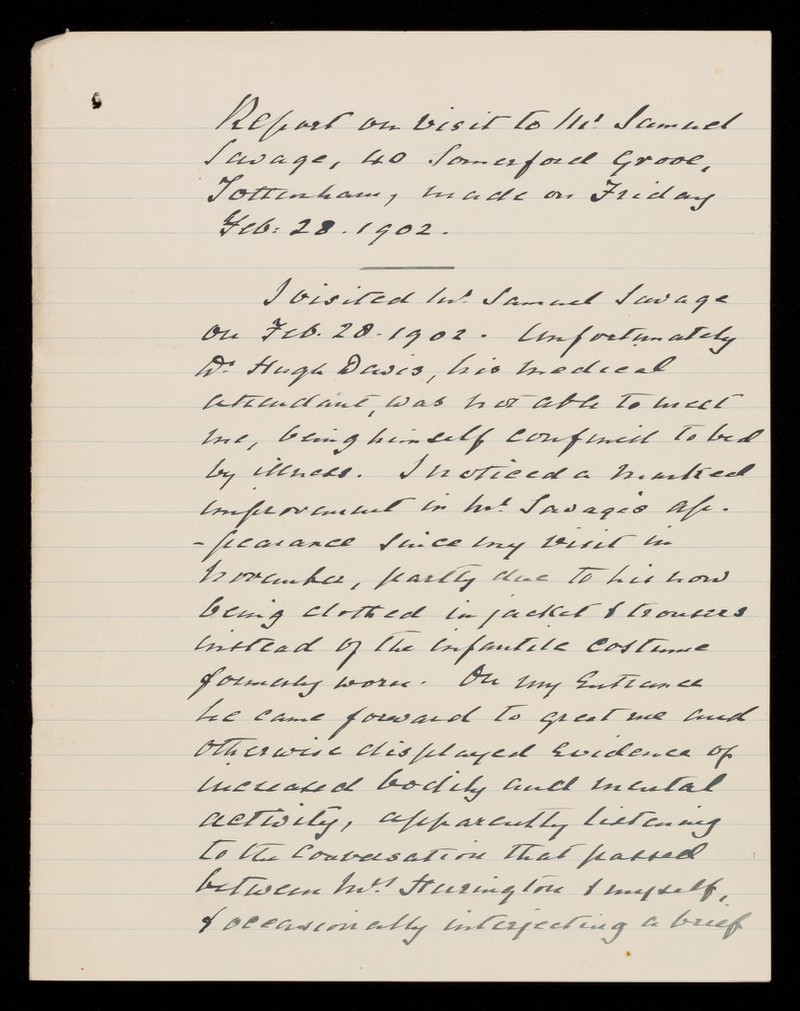 Report on visit to Mr. Samuel
Savage, 40 Somerford Grove,
Tottenham, made on Friday
Feb: 28. 1902.
I visited Mr. Samuel Savage
on Feb. 28. 1902. Unfortunately
Dr. Hugh Davis, his medical
attendant, was not able to meet
me, being himself confined to bed
by illness. I noticed a marked
improvement in Mr. Savage's ap-
-pearance since my visit in
November, partly due to his now
being clothed in jacket & trousers
instead of the infantile costume
formerly worn. On my entrance
he came forward to greet me and
otherwise displayed evidence of
increased bodily and mental
activity, apparently listening
to the conversation that passed
between Mrs. & myself,
& occasionally interjecting a brief